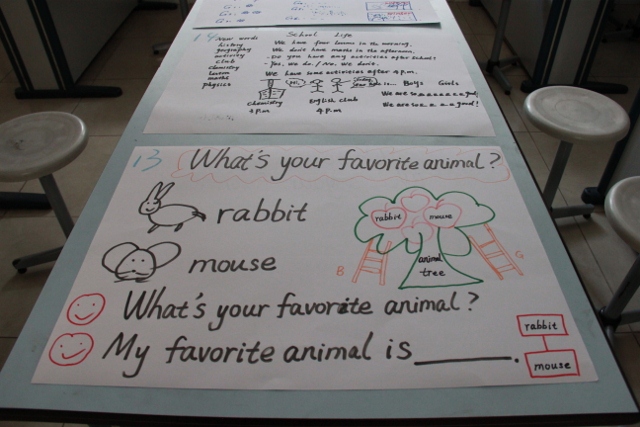 14 School Life
New words
history
geography
activity
club
chemistry
maths
physics
We have four lessons in the morning.
We don't have maths in the afternoon.
- Do you have any activities after school?
- Yes, we do. / No, we don't.
We have some activities after 4 p.m.
Boys Girls
chemistry
English club
4 p.m
13 What's your favorite animal?
rabbit
mouse
rabbit mouse
animal
tree
B
G
What's your favorite animal?
My favorite animal is ______.
rabbit
mouse